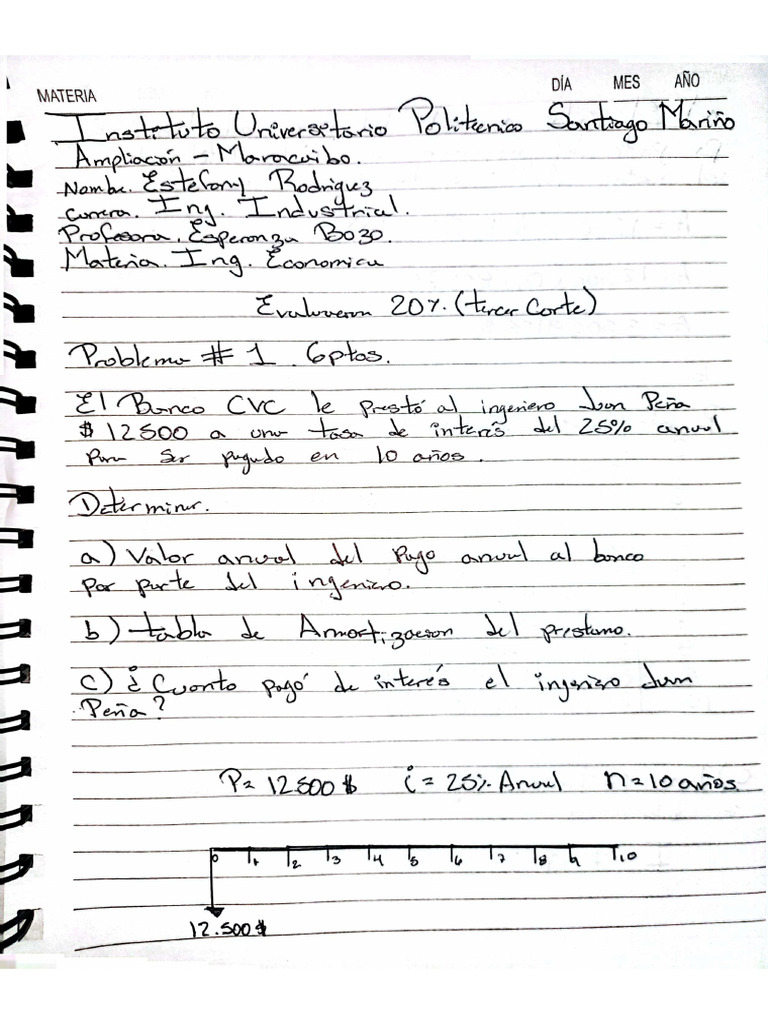 MATERIA DÍA MES AÑO
Instituto Universitario Politecnico Santiago Mariño
Ampliación - Maracaibo.
Nombre. Estefany Rodriguez
Carrera. Ing. Industrial.
Profesora. Esperanza Bozo.
Materia. Ing. Economica
Evaluacion 20%. (tercer Corte)
Problema # 1. 6ptos.
El Banco CVC le prestó al ingeniero Juan Peña
$ 12500 a una tasa de interés del 25% anual
para ser pagado en 10 años.
Determinar.
a) Valor anual del pago anual al banco
por parte del ingeniero.
b) tabla de Amortizacion del prestamo.
c) ¿Cuanto pagó de interés el ingeniero Juan
Peña?
P= 12.500 $ i = 25% Anual n = 10 años.
0 1 2 3 4 5 6 7 8 9 10
12.500 $